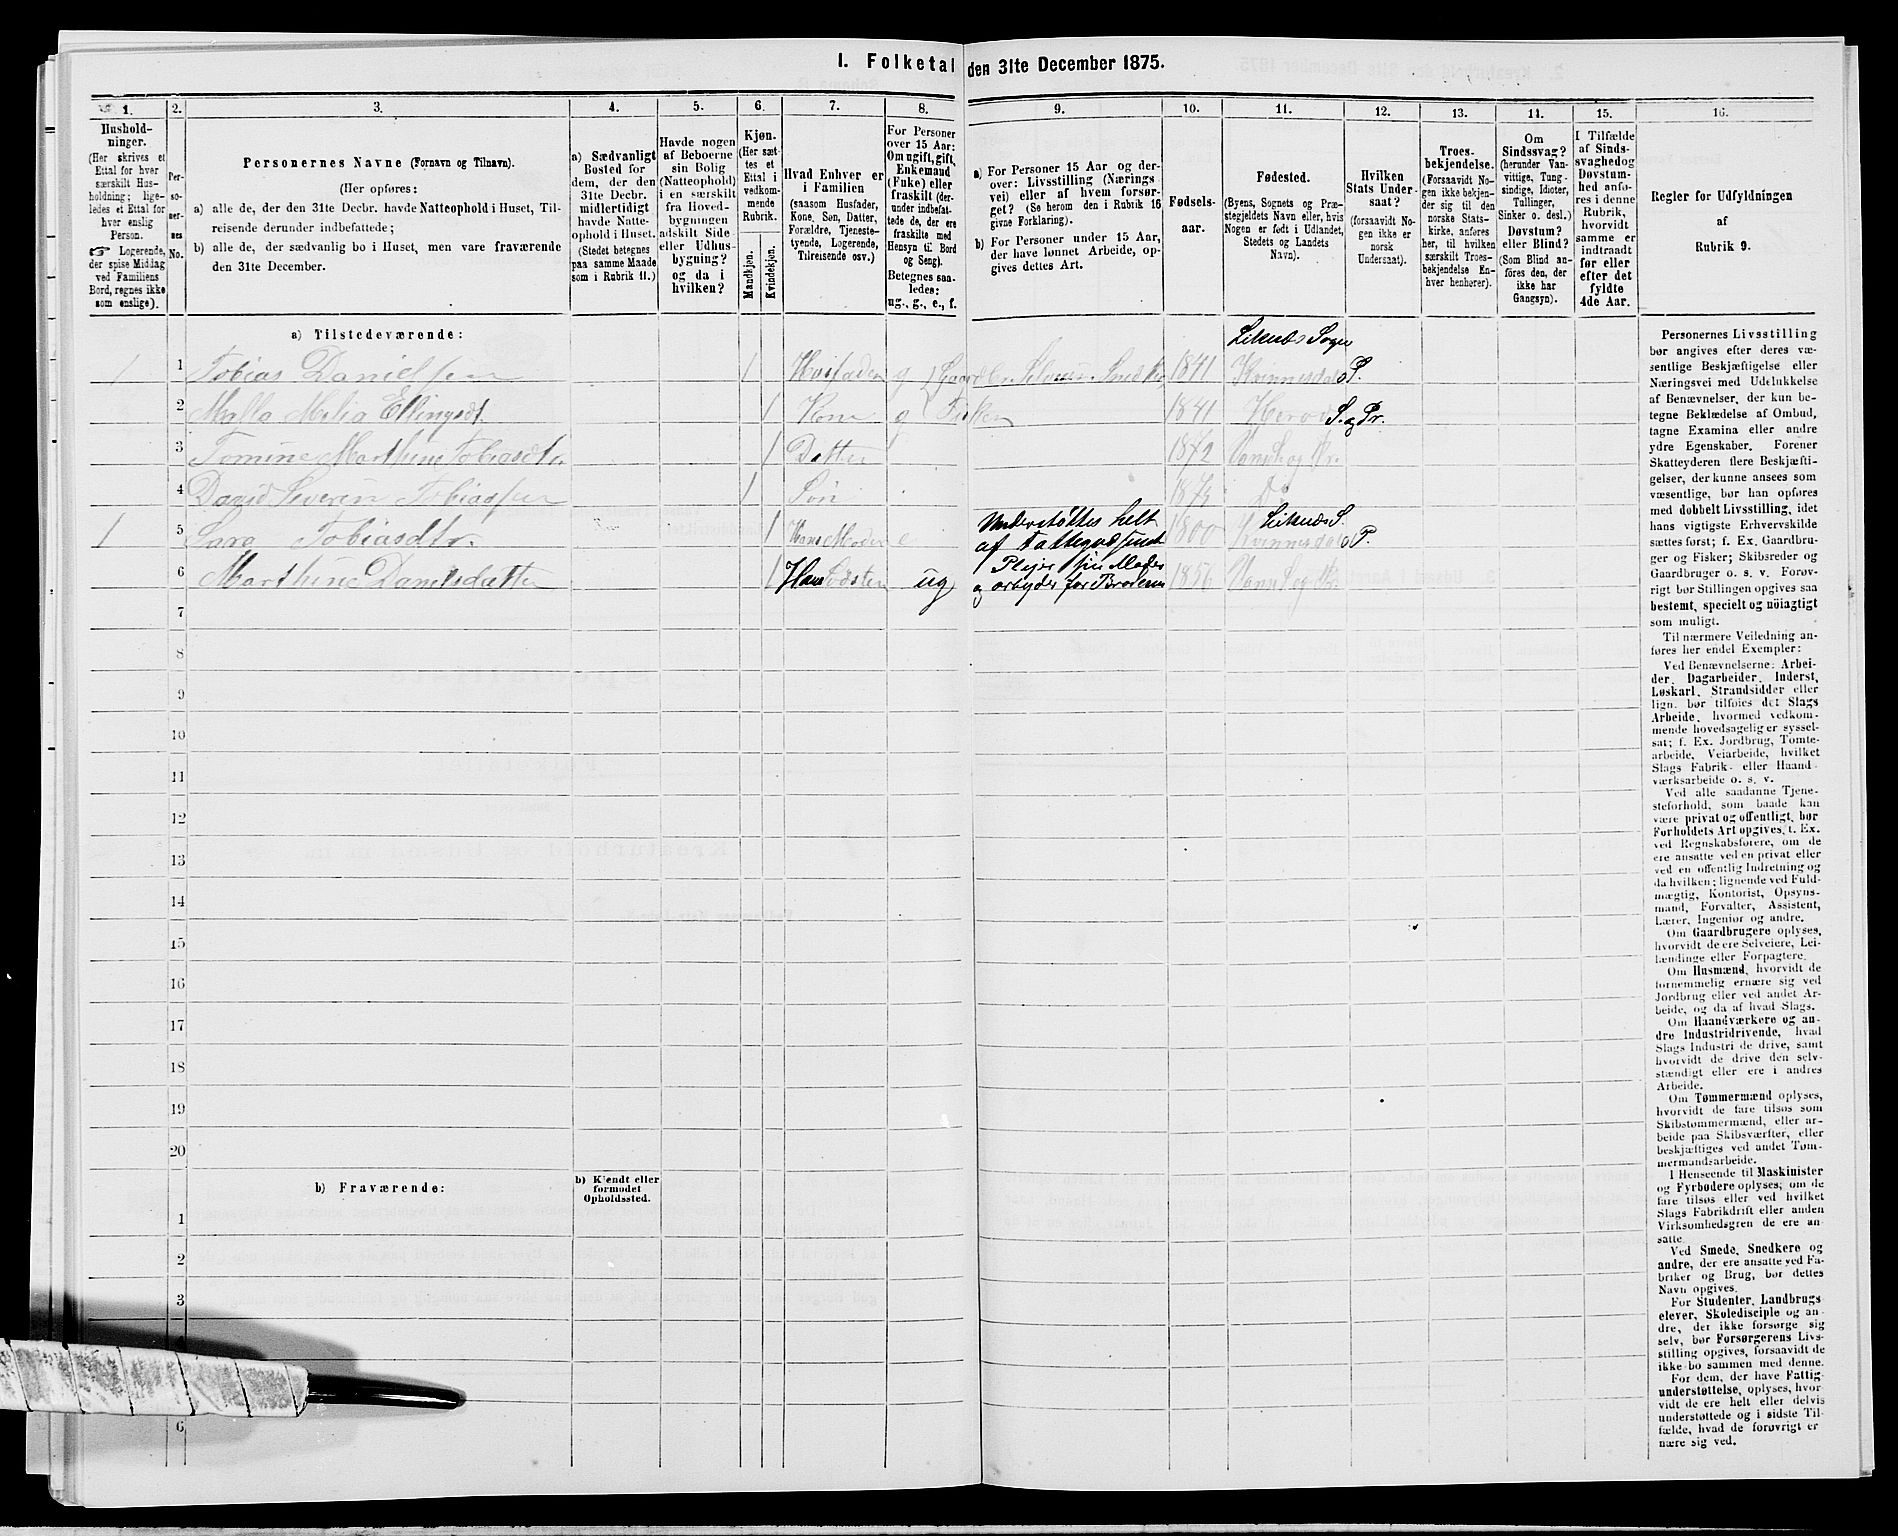 I. Folketal den 31te December 1875.
1. 2. 3. 4. 5. 6. 7. 8. 9. 10. 11. 12. 13. 14. 15. 16.
Hushold-
ninger.
(Her skrives et
Ettal for hver
særskilt Hus-
holdning; lige-
ledes et Ettal for
hver enslig
Person.
☞ Logerende,
der spise Middag
ved Familiens
Bord, regnes ikke
som enslige).
Per-
so-
ner-
nes
No.
Personernes Navne (Fornavn og Tilnavn).
(Her opføres:
a) alle de, der den 31te Decbr. havde Natteophold i Huset, Til-
reisende derunder indbefattede;
b) alle de, der sædvanlig bo i Huset, men vare fraværende
den 31te December.
a) Sædvanligt
Bosted for
dem, der den
31te Decbr.
midlertidigt
havde Natte-
ophold i Huset.
(Stedet betegnes
paa samme Maade
som i Rubrik 11.)
Havde nogen
af Beboerne
sin Bolig
(Natteophold)
i en særskilt
fra Hoved-
bygningen
adskilt Side-
eller Udhus-
bygning?
og da i
hvilken?
Kjøn.
(Her sæt-
tes et
Ettal i
vedkom-
mende
Rubrik.
Mandkjøn.
Kvindekjøn.
Hvad Enhver er
i Familien
(saasom Husfader,
Kone, Søn, Datter,
Forældre, Tjeneste-
tyende, Logerende,
Tilreisende osv.)
For Personer
over 15 Aar:
Om ugift, gift,
Enkemand
(Fuke) eller
fraskilt (der-
under indbefat-
tede de, der ere
fraskilte med
Hensyn til Bord
og Seng).
Betegnes saa-
ledes:
ug., g., e., f.
a) For Personer 15 Aar og der-
over: Livsstilling (Nærings-
vei) eller af hvem forsør-
get? (Se herom den i Rubrik 16
givne Forklaring).
b) For Personer under 15 Aar,
der have lønnet Arbeide, op-
gives dettes Art.
Fødsels-
aar.
Fødested.
(Byens, Sognets og Præ-
stegjeldets Navn eller, hvis
Nogen er født i Udlandet,
Stedets og Landets
Navn).
Hvilken
Stats Under-
saat?
(forsaavidt No-
gen ikke er
norsk
Undersaat).
Troes-
bekjendelse.
(Forsaavidt No-
gen ikke bekjen-
der sig til den
norske Stats-
kirke, anføres
her, til hvilken
særskilt Troes-
bekjendelse En-
hver henhører).
Om
Sindssvag?
(herunder Van-
vittige, Tung-
sindige, Idioter,
Tullinger,
Sinker o. desl.)
Døvstum?
eller Blind?
(Som Blind an-
føres den, der
ikke har
Gangsyn).
I Tilfælde
af Sinds-
svaghed og
Døvstum-
hed anfø-
res i denne
Rubrik,
hvorvidt
samme er
indtraadt
før eller
efter det
fyldte
4de Aar.
Regler for Udfyldningen
af
Rubrik 9.
a) Tilstedeværende:
1 1 Tobias Danielsen 1 Husfader g Gaardbr Selveier Snedker 1841 Sogn Kvinnesdal P.
2 Malla Melia Ellingsdt. 1 Kone g 1841 S. og Pr.
3 Tomine Marthine Tobiasdtr. 1 Datter 1872 Vanse S og Pr.
4 David Severin Tobiassen 1 Søn 1875 Do
1 5 Sara Tobiasdtr. 1 Kones Moder e Understøttes helt af Fattigvæsenet 1800 S. Kvinnesdal P.
6 Marthine Danielsdatter 1 Hans Søster ug Plejer sin Moder og arbyder for Broderen 1856 Vanse S og Pr.
7
8
9
10
11
12
13
14
15
16
17
18
19
20
b) Fraværende:
b) Kjendt eller
formodet
Opholdssted.
1
2
3
6
Personernes Livsstilling
bør angives efter deres væ-
sentlige Beskjæftigelse eller
Næringsvei med Udelukkelse
af Benævnelser, der kun be-
tegne Beklædelse af Ombud,
tagne Examina eller andre
ydre Egenskaber. Forener
Skatteyderen flere Beskjæfti-
gelser, der kunne ansees som
væsentlige, bør han opføres
med dobbelt Livsstilling, idet
hans vigtigste Erhvervskilde
sættes først; f. Ex. Gaardbru-
ger og Fisker; Skibsreder og
Gaardbruger o. s. v. Forøv-
rigt bør Stillingen opgives saa
bestemt, specielt og nöiagtigt
som muligt.
Til nærmere Veiledning an-
føres her endel Exempler:
Ved Benævnelserne: Arbei-
der, Dagarbeider, Inderst,
Løskarl, Strandsidder eller
lign. bør tilføies det Slags
Arbeide, hvormed vedkom-
mende hovedsagelig er syssel-
sat; f. Ex. Jordbrug, Tomte-
arbeide, Veiarbeide, hvilket
Slags Fabrik- eller Haand-
værksarbeide o. s. v.
Ved alle saadanne Tjene-
steforhold, som baade kan
være privat og offentligt, bør
Forholdets Art opgives, t. Ex.
ved Regnskabsførere, om de
ere ansatte ved en privat eller
ved en offentlig Indretning og
da hvilken; lignende ved Fuld-
mægtig, Kontorist, Opsyns-
mand, Forvalter, Assistent,
Lærer, Ingeniør og andre.
Om Gaardbrugere oplyses,
hvorvidt de ere Selveiere, Lei-
lændinge eller Forpagtere.
Om Husmænd, hvorvidt de
fornemmelig ernære sig ved
Jordbrug eller ved andet Ar-
beide, og da af hvad Slags.
Om Haandværkere og an-
dre Industridrivende, hvad
Slags Industri de drive, samt
hvorvidt de drive den selv-
stændigt eller ere i andres
Arbeide.
Om Tømmermænd oplyses,
hvorvidt de fare tilsøs som
Skibstømmermænd, eller ar-
beide paa Skibsværfter, eller
beskjæftiges ved andet Tøm-
mermandsarbeide.
I Henseende til Maskinister
og Fyrbødere oplyses, om de
fare tilsøs eller ved hvilket
Slags Fabrikdrift eller anden
Virksomhedsgren de ere an-
satte.
Ved Smede, Snedkere og
andre, der ere ansatte ved Fa-
briker og Brug, bør dettes
Navn opgives.
For Studenter, Landbrugs-
elever, Skoledisciple og an-
dre, der ikke forsørge sig
selv, bør Forsørgerens Livs-
stilling opgives, forsaavidt de
ikke bo sammen med denne.
For dem, der have Fattig-
understøttelse, oplyses, hvor-
vidt de ere helt eller delvis
understøttede og i sidste Til-
fælde, hvad de forøvrigt er-
nære sig ved.